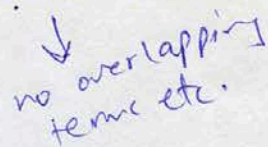 no overlapping
terms etc.